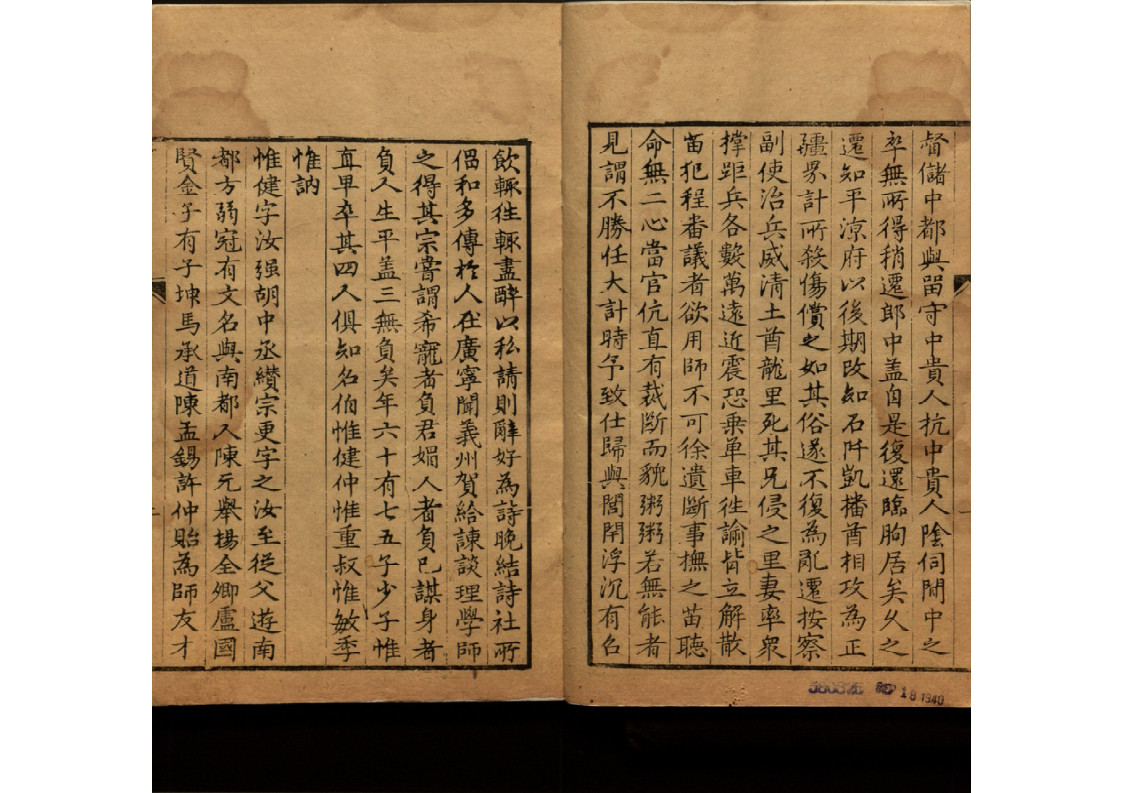 督儲中都與留守中貴人抗中貴人陰伺閒中之
卒無所得稍遷郎中盖自是復還臨朐居矣久之
遷知平凉府以後期改知石阡凱播酋相攻為正
疆界計所殺傷償之如其俗遂不復為亂遷按察
副使治兵威清土酋龍里死其兄侵之里妻率衆
撑距兵各數萬遠近震恐乗单車徃諭皆立解散
苗犯程番議者欲用師不可徐遺斷事撫之苗聴
命無二心當官伉直有裁斷而貌粥粥若無能者
見謂不勝任大計時予致仕歸與閭閈浮沉有召
飲輙徃輙盡醉以私請則辭好為詩晚結詩社所
倡和多傳於人在廣寧聞義州賀給諫談理學師
之得其宗嘗謂希寵者負君媚人者負已謀身者
負人生平盖三無負矣年六十有七五子少子惟
直早卒其四人俱知名伯惟健仲惟重叔惟敏季
惟訥
惟健字汝强胡中丞纘宗更字之汝至従父遊南
都方弱冠有文名與南都人陳元舉楊全卿盧國
賢金子有子坤馬承道陳孟錫許仲貽為師友才
18 1940